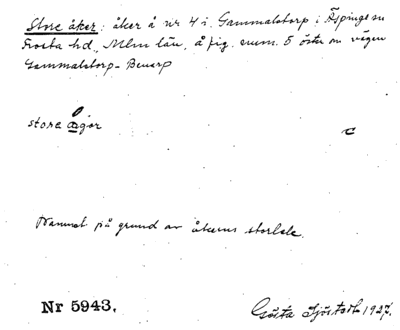 Store åker: åker å nr 4 i Gammalstorp i Äspinge sn
Frosta hd., Mlm län, å fig. num. 5 öster om vägen
Gammalstorp - Benarp
store ågər
c
Namnet på grund av åkerns storlek.
Nr 5943. Gösta Sjöstedt 1927.